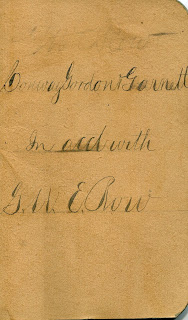 Conway Gordon & Garnett
In acct with
G. W. E. Row